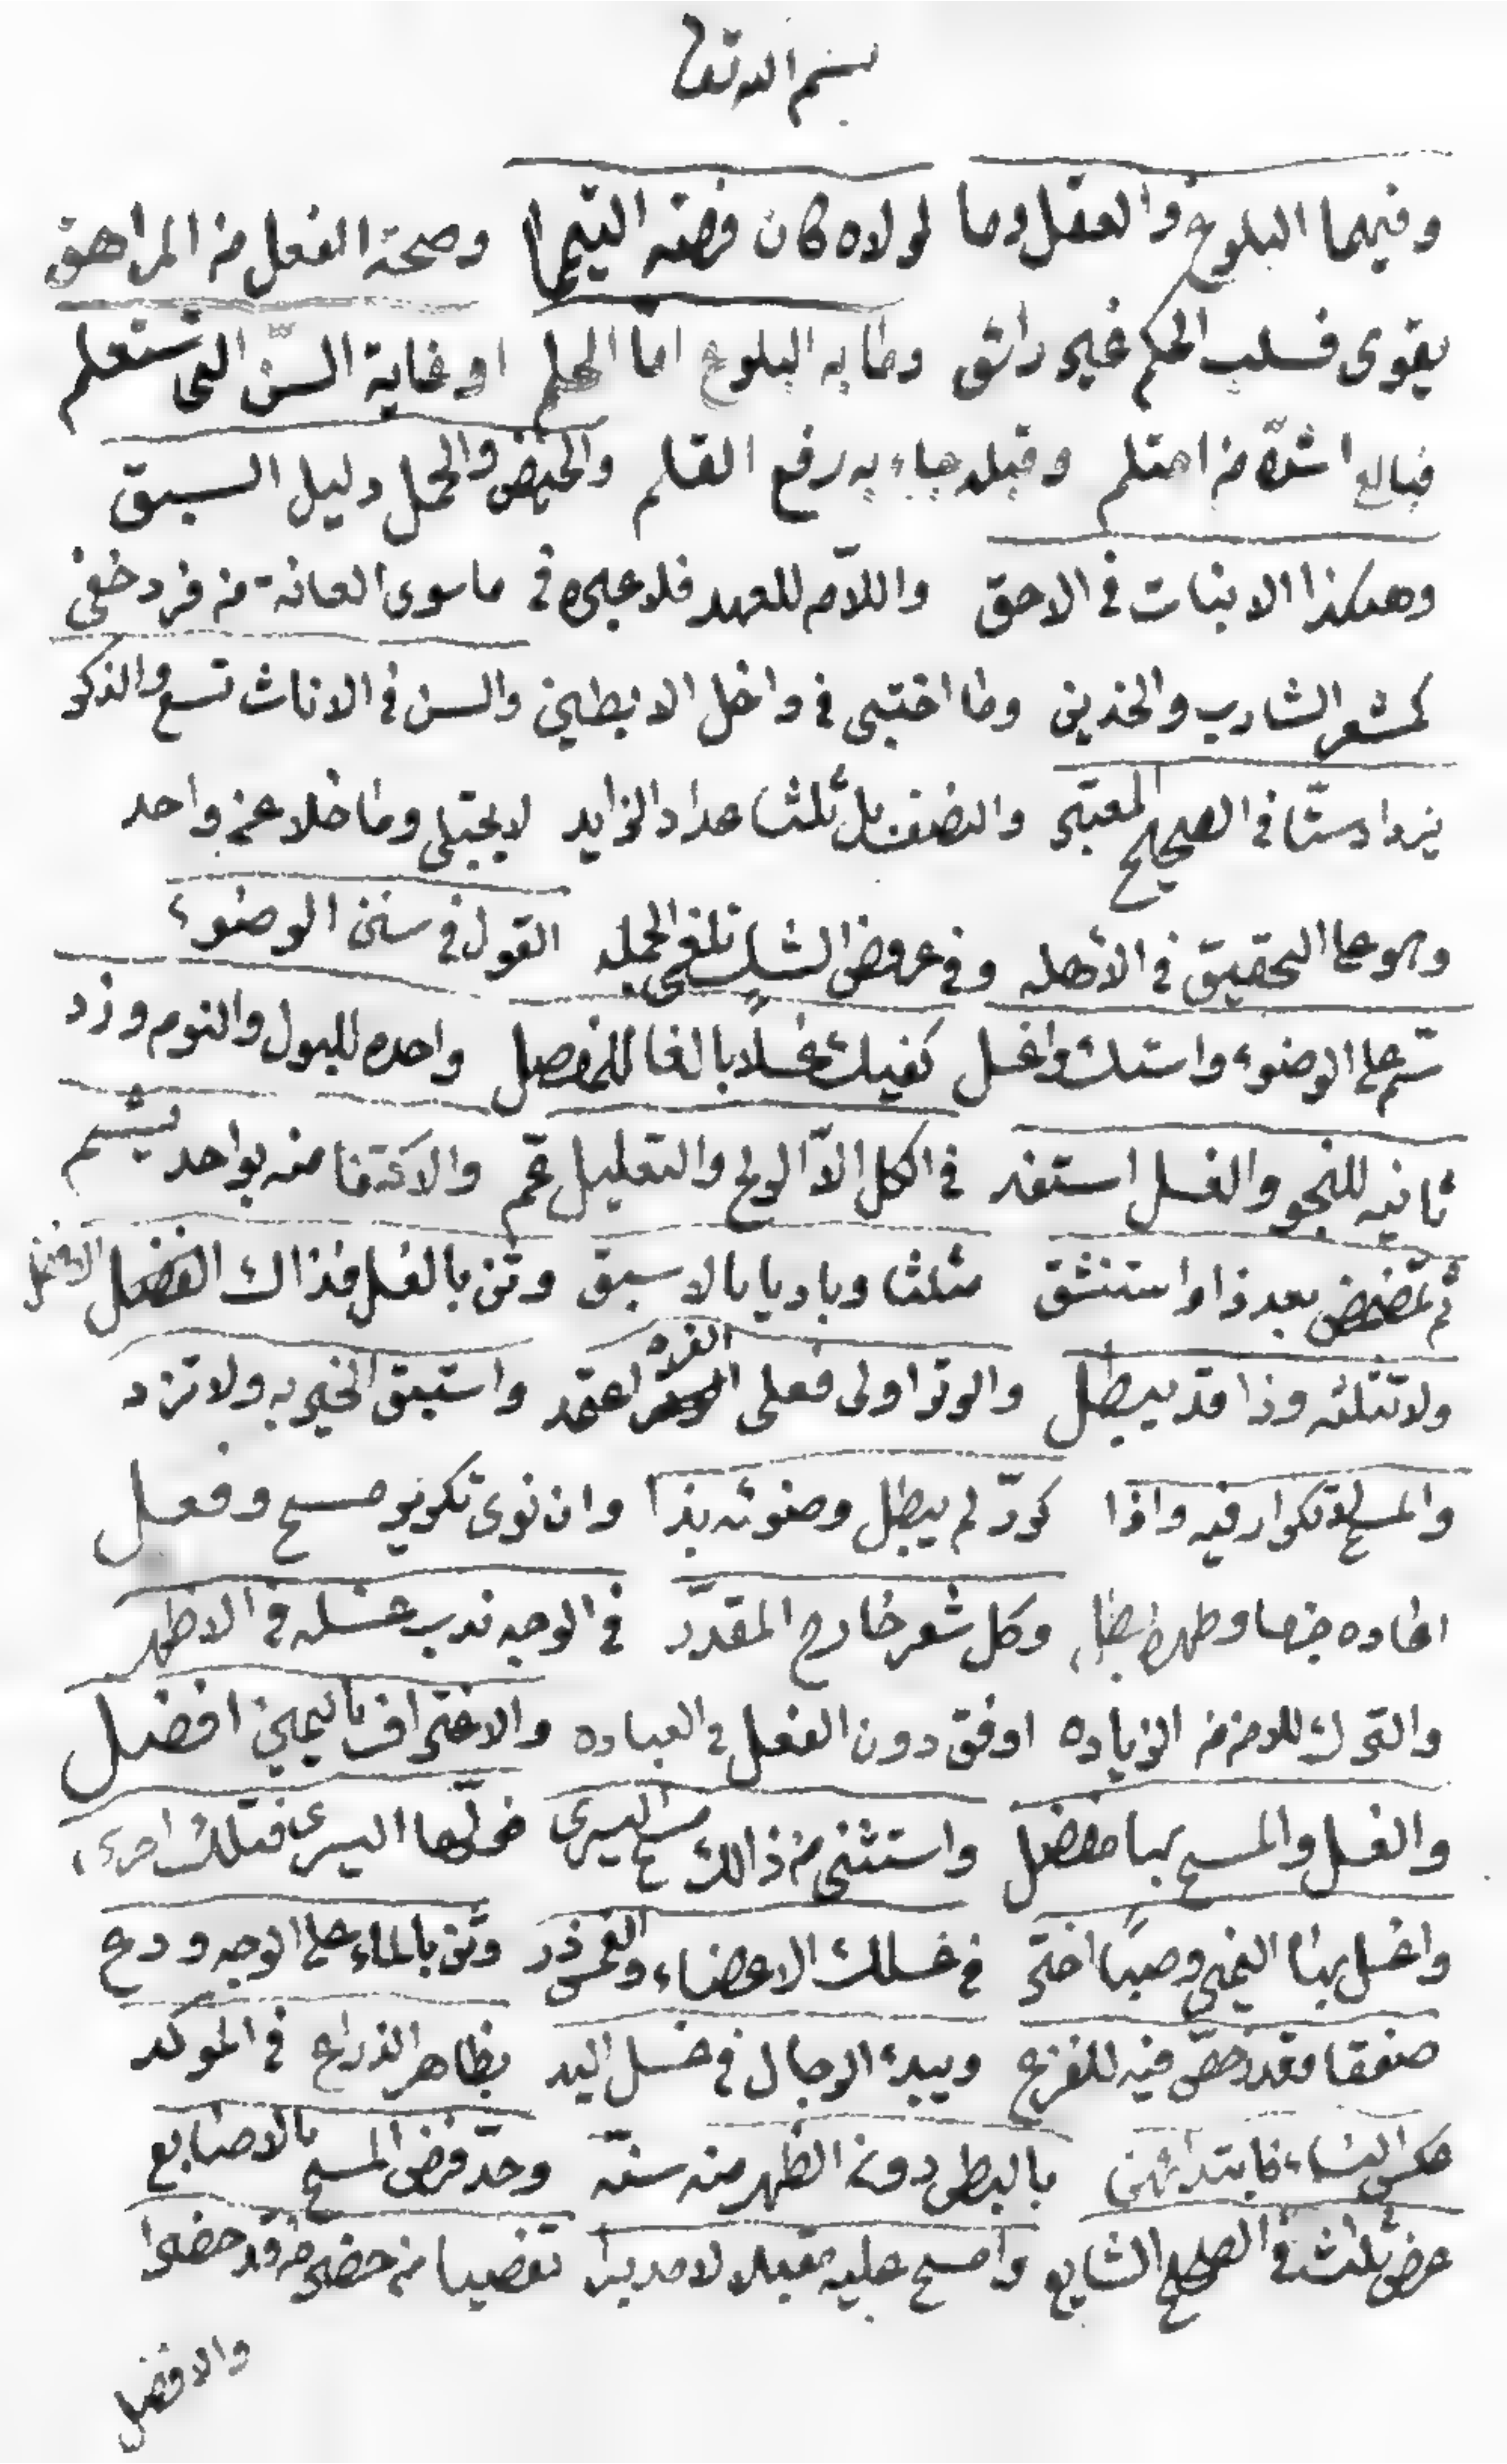 بسم الله تعا
وفيهما البلوغ والعقل وما لولاه كان فرضه التيمما وصحة الفعل من المراهق
يقوى فسلب الحكم غير رائق وما به البلوغ اما الحلم او غاية السن التي ستعلم
فبالغ اشدّه من احتلم وقبله جاء به رفع القلم والحيض والحمل دليل السبق
وهكذا الانبات في الاحق واللام للعهد فلا عبره في ما سوى العانة من فرد خفي
كشعر الشارب والخدين وما اختبى في داخل الابطين والسن في الاناث تسع والذكر
يزداد ستّا في الصحيح المعتبر والنصف بل ثلثا عداد الزايد لا يجتلى وما خلا عن واحد
وهو على التحقيق في الأهله وفي عروض الشك تلغى الجمله القول في سنن الوضوء
سمّ على الوضوء واستك واغسل كفيك غسلا بالغا للمفصل واحده للبول والنوم وزد
ثانيه للنجو والغسل استفد في الكل الّا الريح والتعليل عمّ والاكتفا منه بواحد يتم
ثم تمضمض بعد ذا واستنشق مثلثا وباديا بالاسبق وثن بالغسل فذاك الفضل الافضل
ولا تثلثه وذا قد يبطل والوتر اولى فعلى الفرد اعتمد واستبق الخير به ولا تزد
والمسح لا تكرار فيه واذا كرّر لم يبطل وضوئه بذا وان نوى تكرير مسح وفعل
وكل شعر خارج المقدّر في الوجه ندب غسله في الاظهر
والترك للاحتراز من الزياده اوفق دون الفعل في العباده والاغتراف باليمين افضل
والغسل والمسح بها مفضل واستثنى من ذالك مسح اليسرى فولّها اليسرى فتلك احرى
واغسل بهذا اليمنى وصبا اختر في غسلك الاعضاء والغمس ذر وثن بالماء على الوجه ودع
صفقا فقد رخص فيه للفزع ويبدء الرجال في غسل اليد بظاهر الذراع في الموكد
عكس النساء فابتدائهن بالبطن دون الظهر منه سنّه وحدّ فرض المسح بالاصابع
عرض ثلث في الصحيح الشايع وامسح عليه مقبلا لا مدبرا تفصيا من حضر من قد حضرا
والافضل